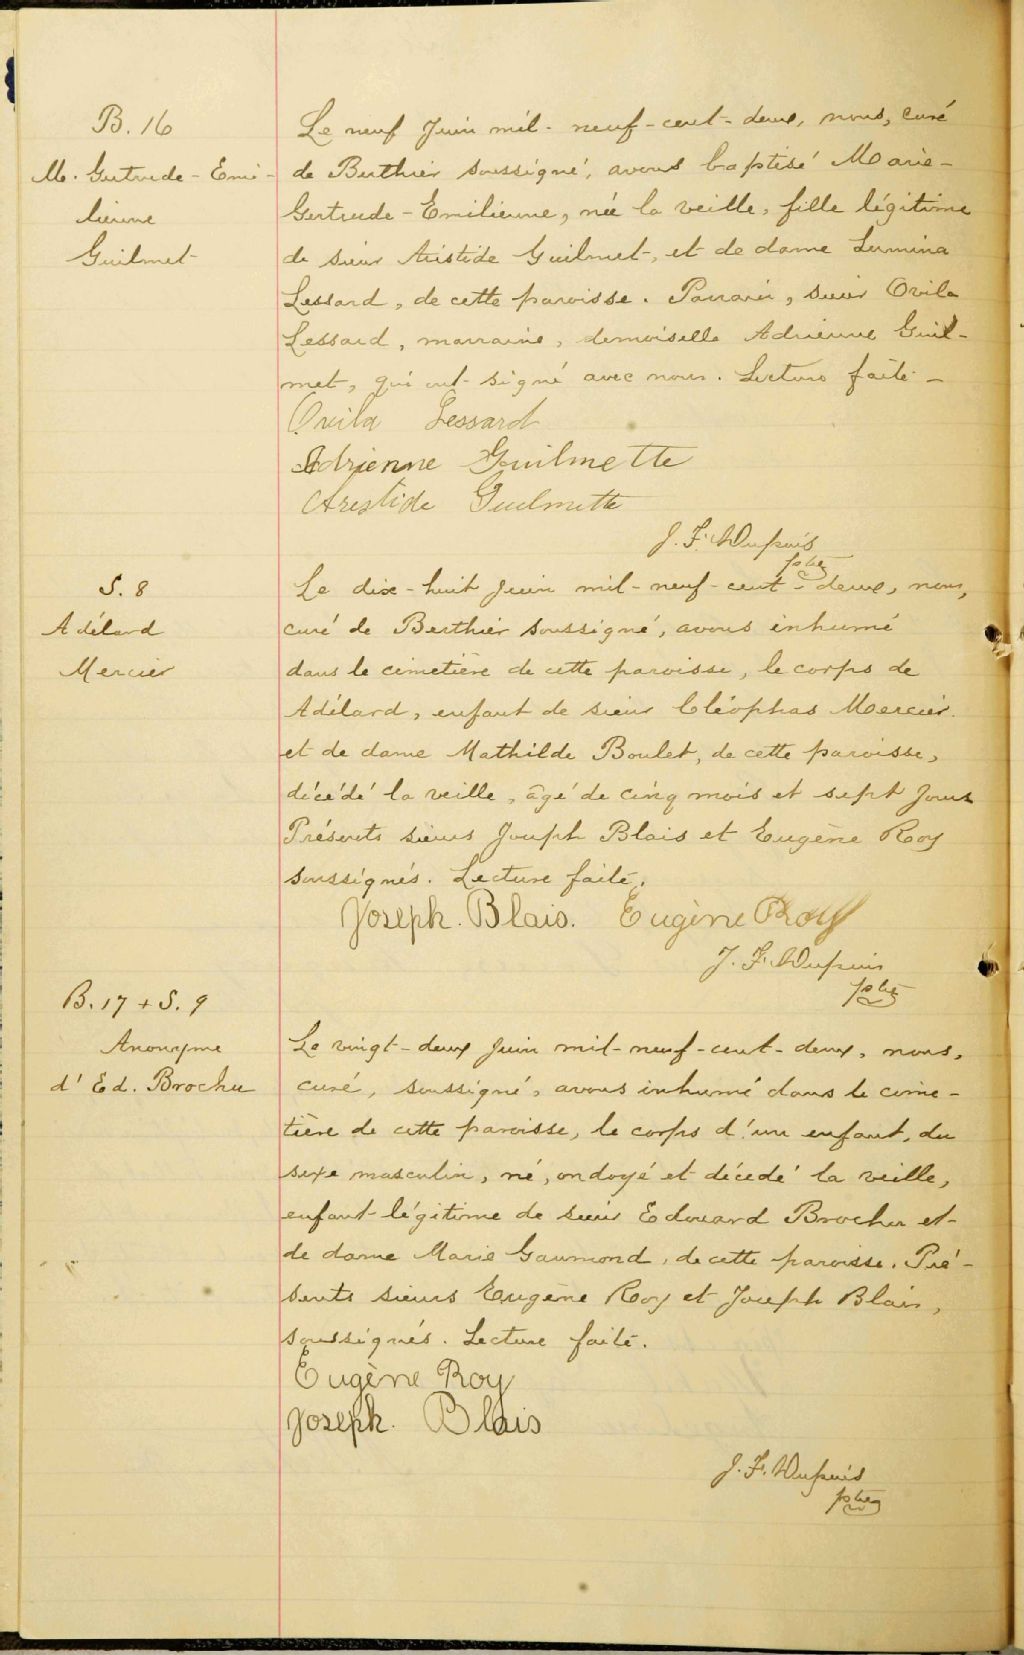 B. 16
M. Gertrude - Emi-
lienne
Guilmet
Le neuf Juin mil - neuf - cent - deux, nous, curé
de Berthier soussigné, avons baptisé Marie -
Gertrude - Emilienne, née la veille, fille légitime
de sieur Aristide Guilmet, et de dame Lumina
Lessard, de cette paroisse. Parrain, sieur Ovila
Lessard, marraine, demoiselle Adrienne Guil-
met, qui ont signé avec nous. Lecture faite -
Ovila Lessard
Adrienne Guilmette
Arestide Guilmette
J. F. Dupuis
ptre
S. 8
Adélard
Mercier
Le dix - huit Juin mil - neuf - cent - deux, nous,
curé de Berthier soussigné, avons inhumé
dans le cimetière de cette paroisse, le corps de
Adélard, enfant de sieur Cléophas Mercier
et de dame Mathilde Boulet, de cette paroisse,
décédé la veille, âgé de cinq mois et sept jours
Présents sieurs Joseph Blais et Eugène Roy
soussignés. Lecture faite.
Joseph. Blais. Eugène Roy
J. F. Dupuis
ptre
B. 17 + S. 9
Anonyme
d' Ed. Brochu
Le vingt - deux Juin mil - neuf - cent - deux, nous,
curé, soussigné, avons inhumé dans le cime-
tière de cette paroisse, le corps d'un enfant, du
sexe masculin, né, ondoyé et décédé la veille,
enfant légitime de sieur Edouard Brochu et
de dame Marie Gaumond, de cette paroisse. Pré-
sents sieurs Eugène Roy et Joseph Blais,
soussignés. Lecture faite.
Eugène Roy
Joseph. Blais
J. F. Dupuis
ptre